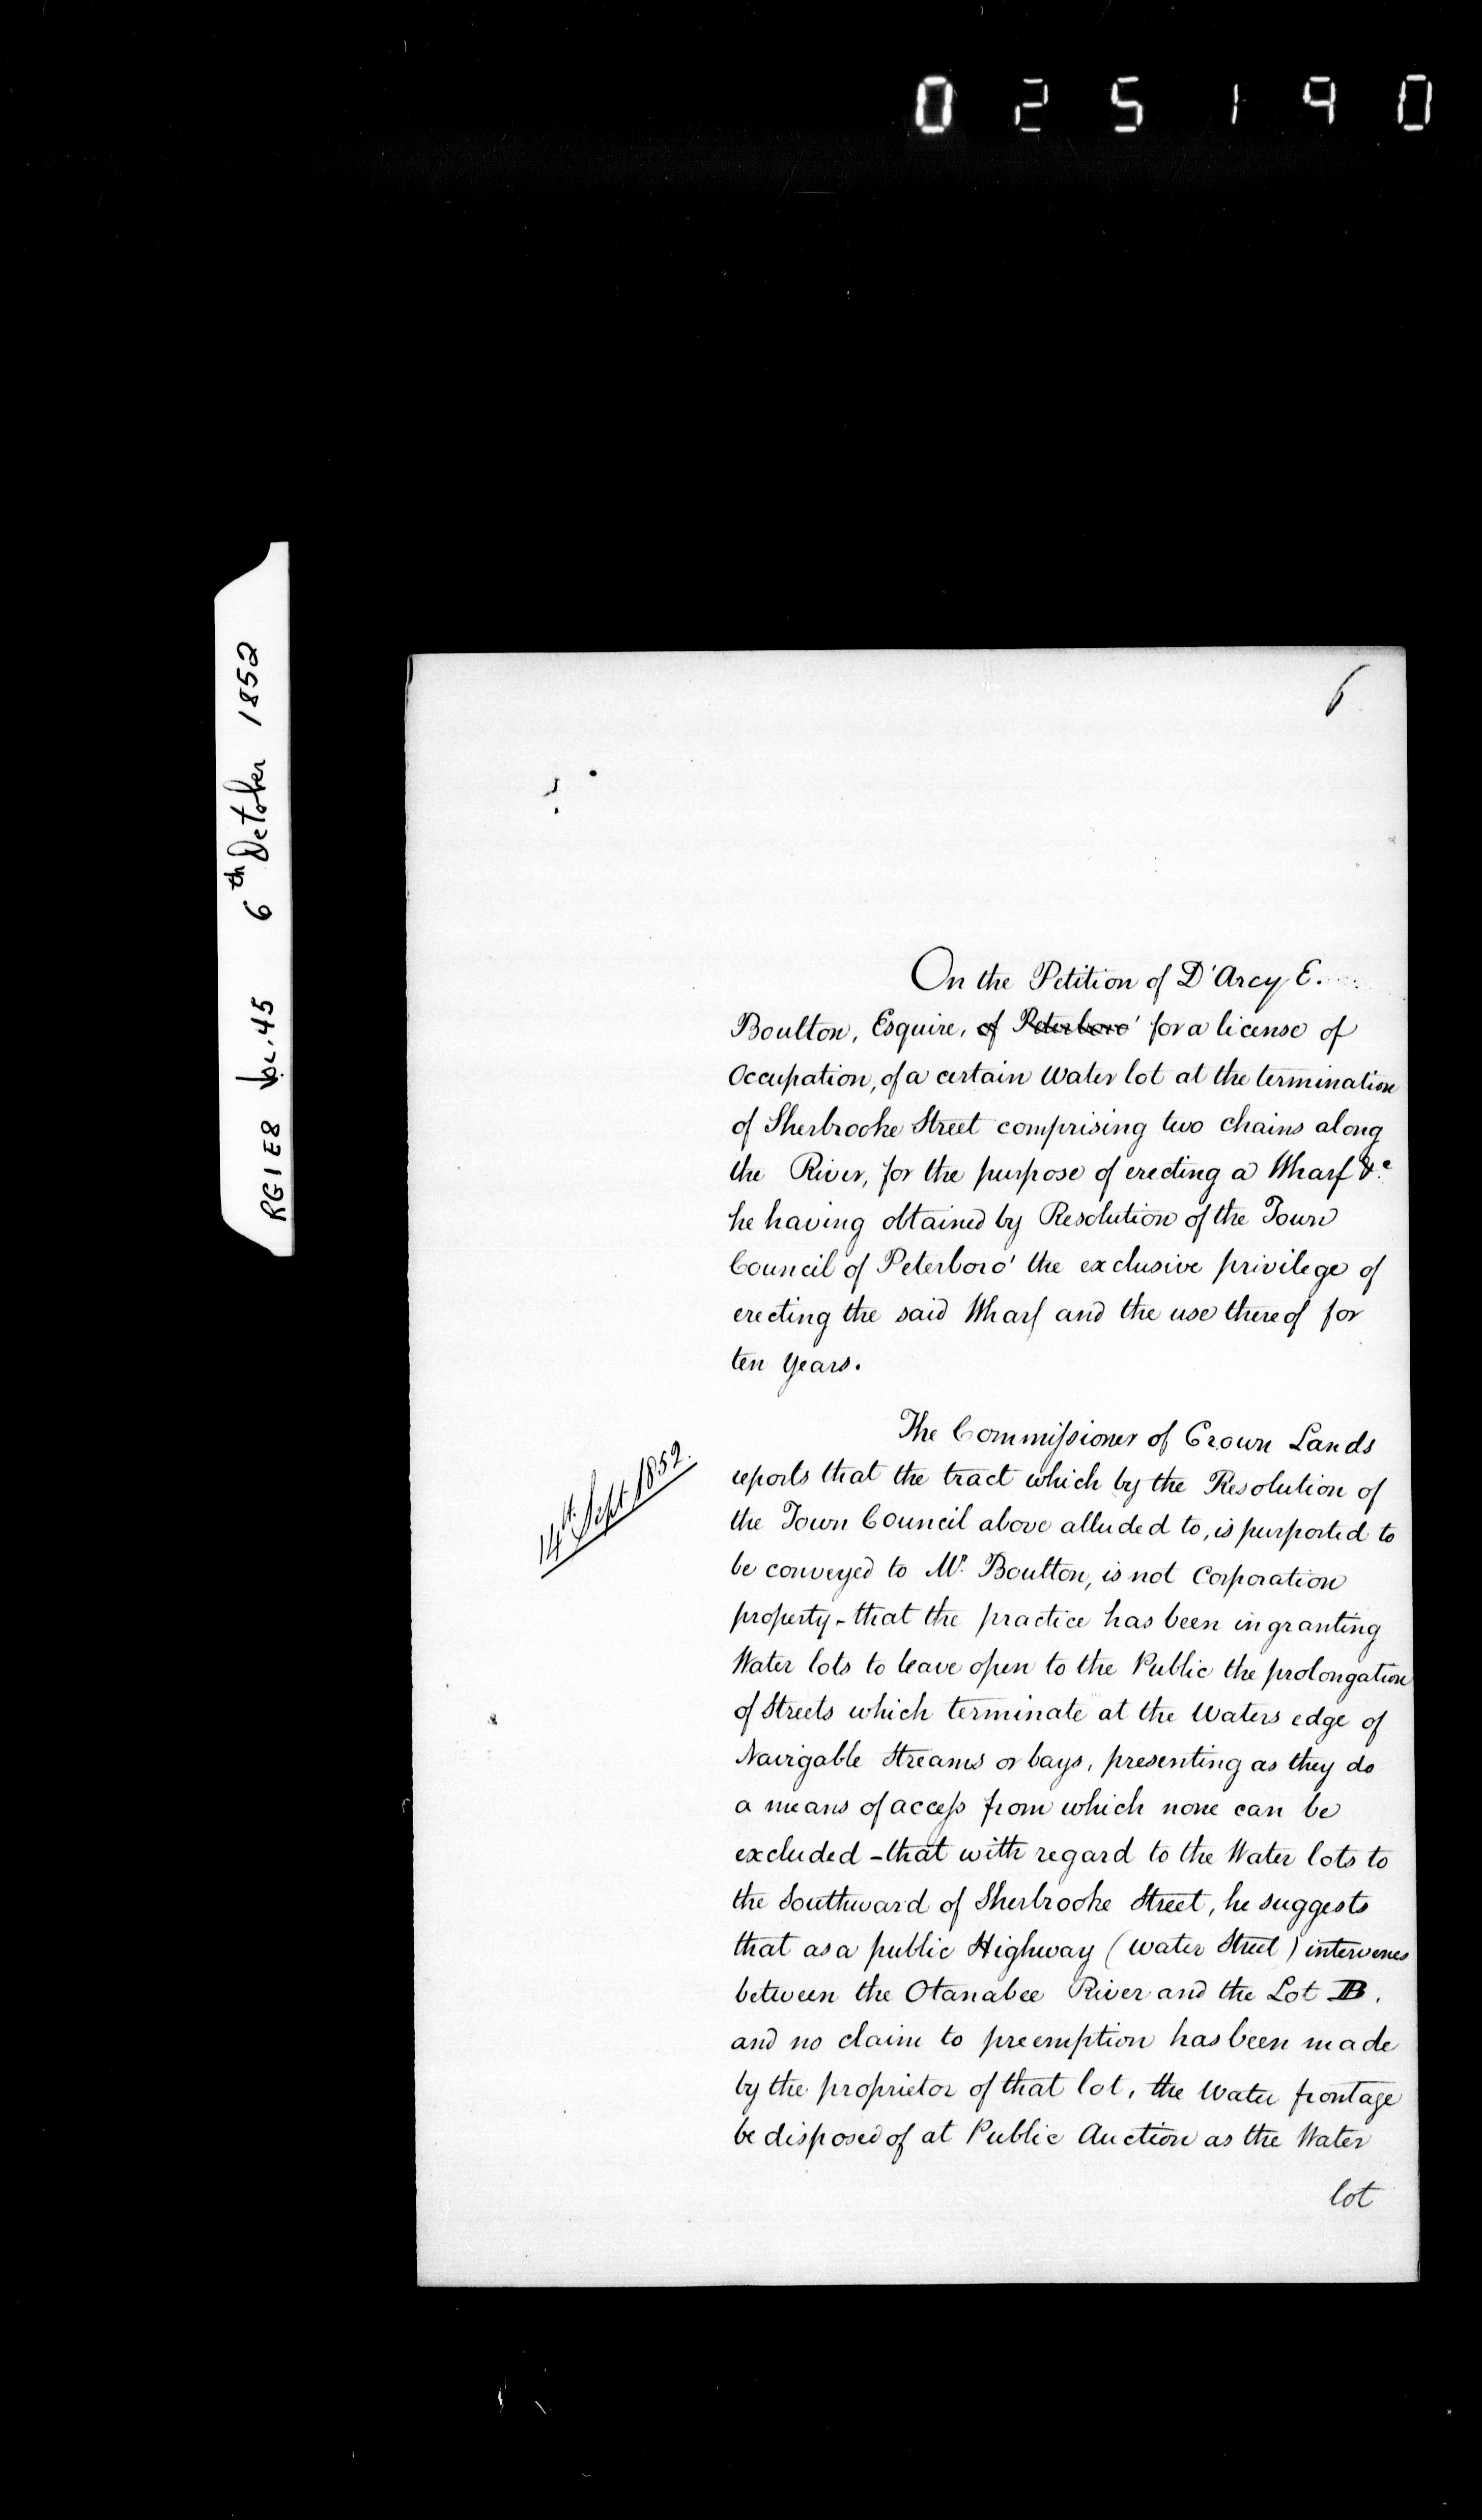 025190
RG1 E8 Vol. 45 6th October 1852
6
On the Petition of D'Arcy E.
Boulton, Esquire, of Peterboro' for a license of
Occupation, of a certain Water lot at the termination
of Sherbrooke Street comprising two chains along
the River, for the purpose of erecting a Wharf &c.
he having obtained by Resolution of the Town
Council of Peterboro' the exclusive privilege of
erecting the said Wharf and the use thereof for
ten years.
The Commissioner of Crown Lands
14th Sept 1852.
reports that the tract which by the Resolution of
the Town Council above alluded to, is purported to
be conveyed to Mr. Boulton, is not Corporation
property - that the practice has been in granting
Water lots to leave open to the Public the prolongation
of Streets which terminate at the Waters edge of
Navigable Streams or bays, presenting as they do
a means of access from which none can be
excluded - that with regard to the Water lots to
the Southward of Sherbrooke Street, he suggests
that as a public Highway (Water Street) intervenes
between the Otanabee River and the Lot B.
and no claim to preemption has been made
by the proprietor of that lot, the Water frontage
be disposed of at Public Auction as the Water
lot